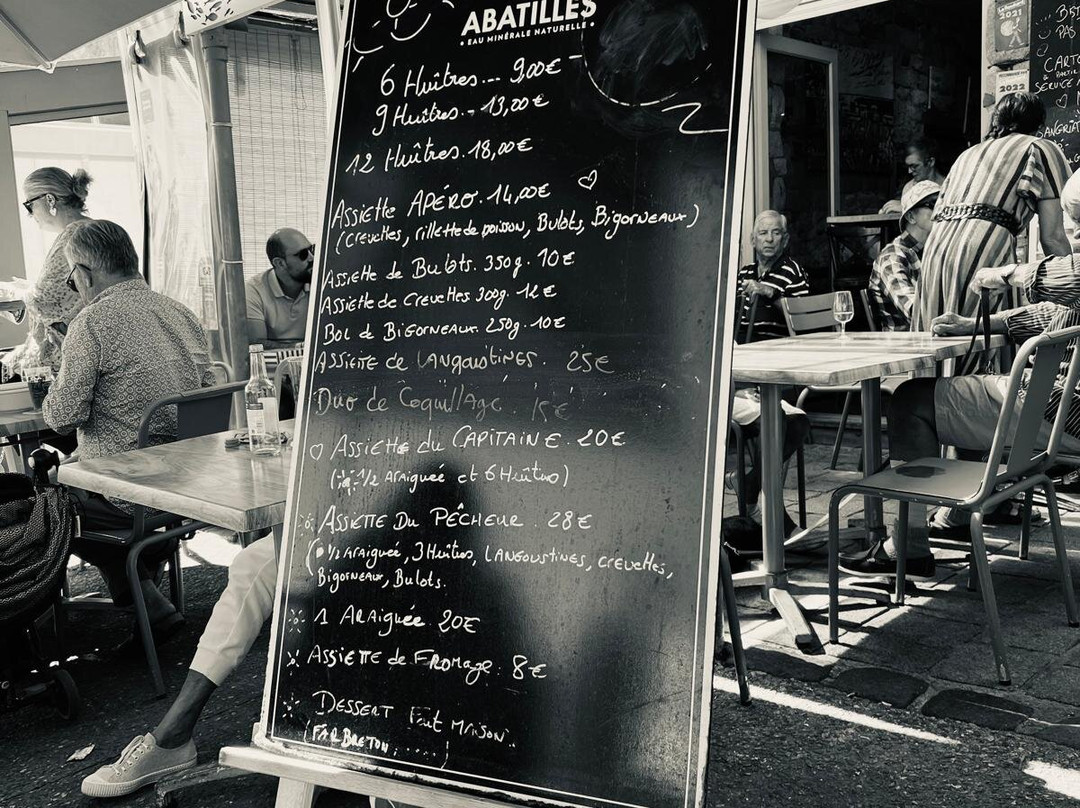 ABATILLES
• EAU MINÉRALE NATURELLE •
6 Huîtres... 9,00€
9 Huîtres.- 13,00€
12 Huîtres. 18,00€
ASSIETTE APÉRO. 14,00€
(Crevettes, rillette de poisson, Bulots, Bigorneaux)
ASSIETTE de Bulots. 350g. 10€
ASSIETTE de Crevettes 300g. 12€
Bol de BIGORNEAUX. 250g. 10€
ASSIETTE de LANGOUSTINES. 25€
Duo de Coquillage. 15€
ASSIETTE du CAPITAINE. 20€
(1/2 Araignée et 6 Huîtres)
ASSIETTE Du PÊCHEUR. 28€
(1/2 Araignée, 3 Huîtres, LANGOUSTINES, crevettes,
Bigorneaux, Bulots.
1 ARAIGNÉE. 20€
ASSIETTE de FROMAGE. 8€
DESSERT Fait MAISON..
(FAR BRETON, .....)
2021
2022
PAS
CARTE
SERVICE
SANGRIA